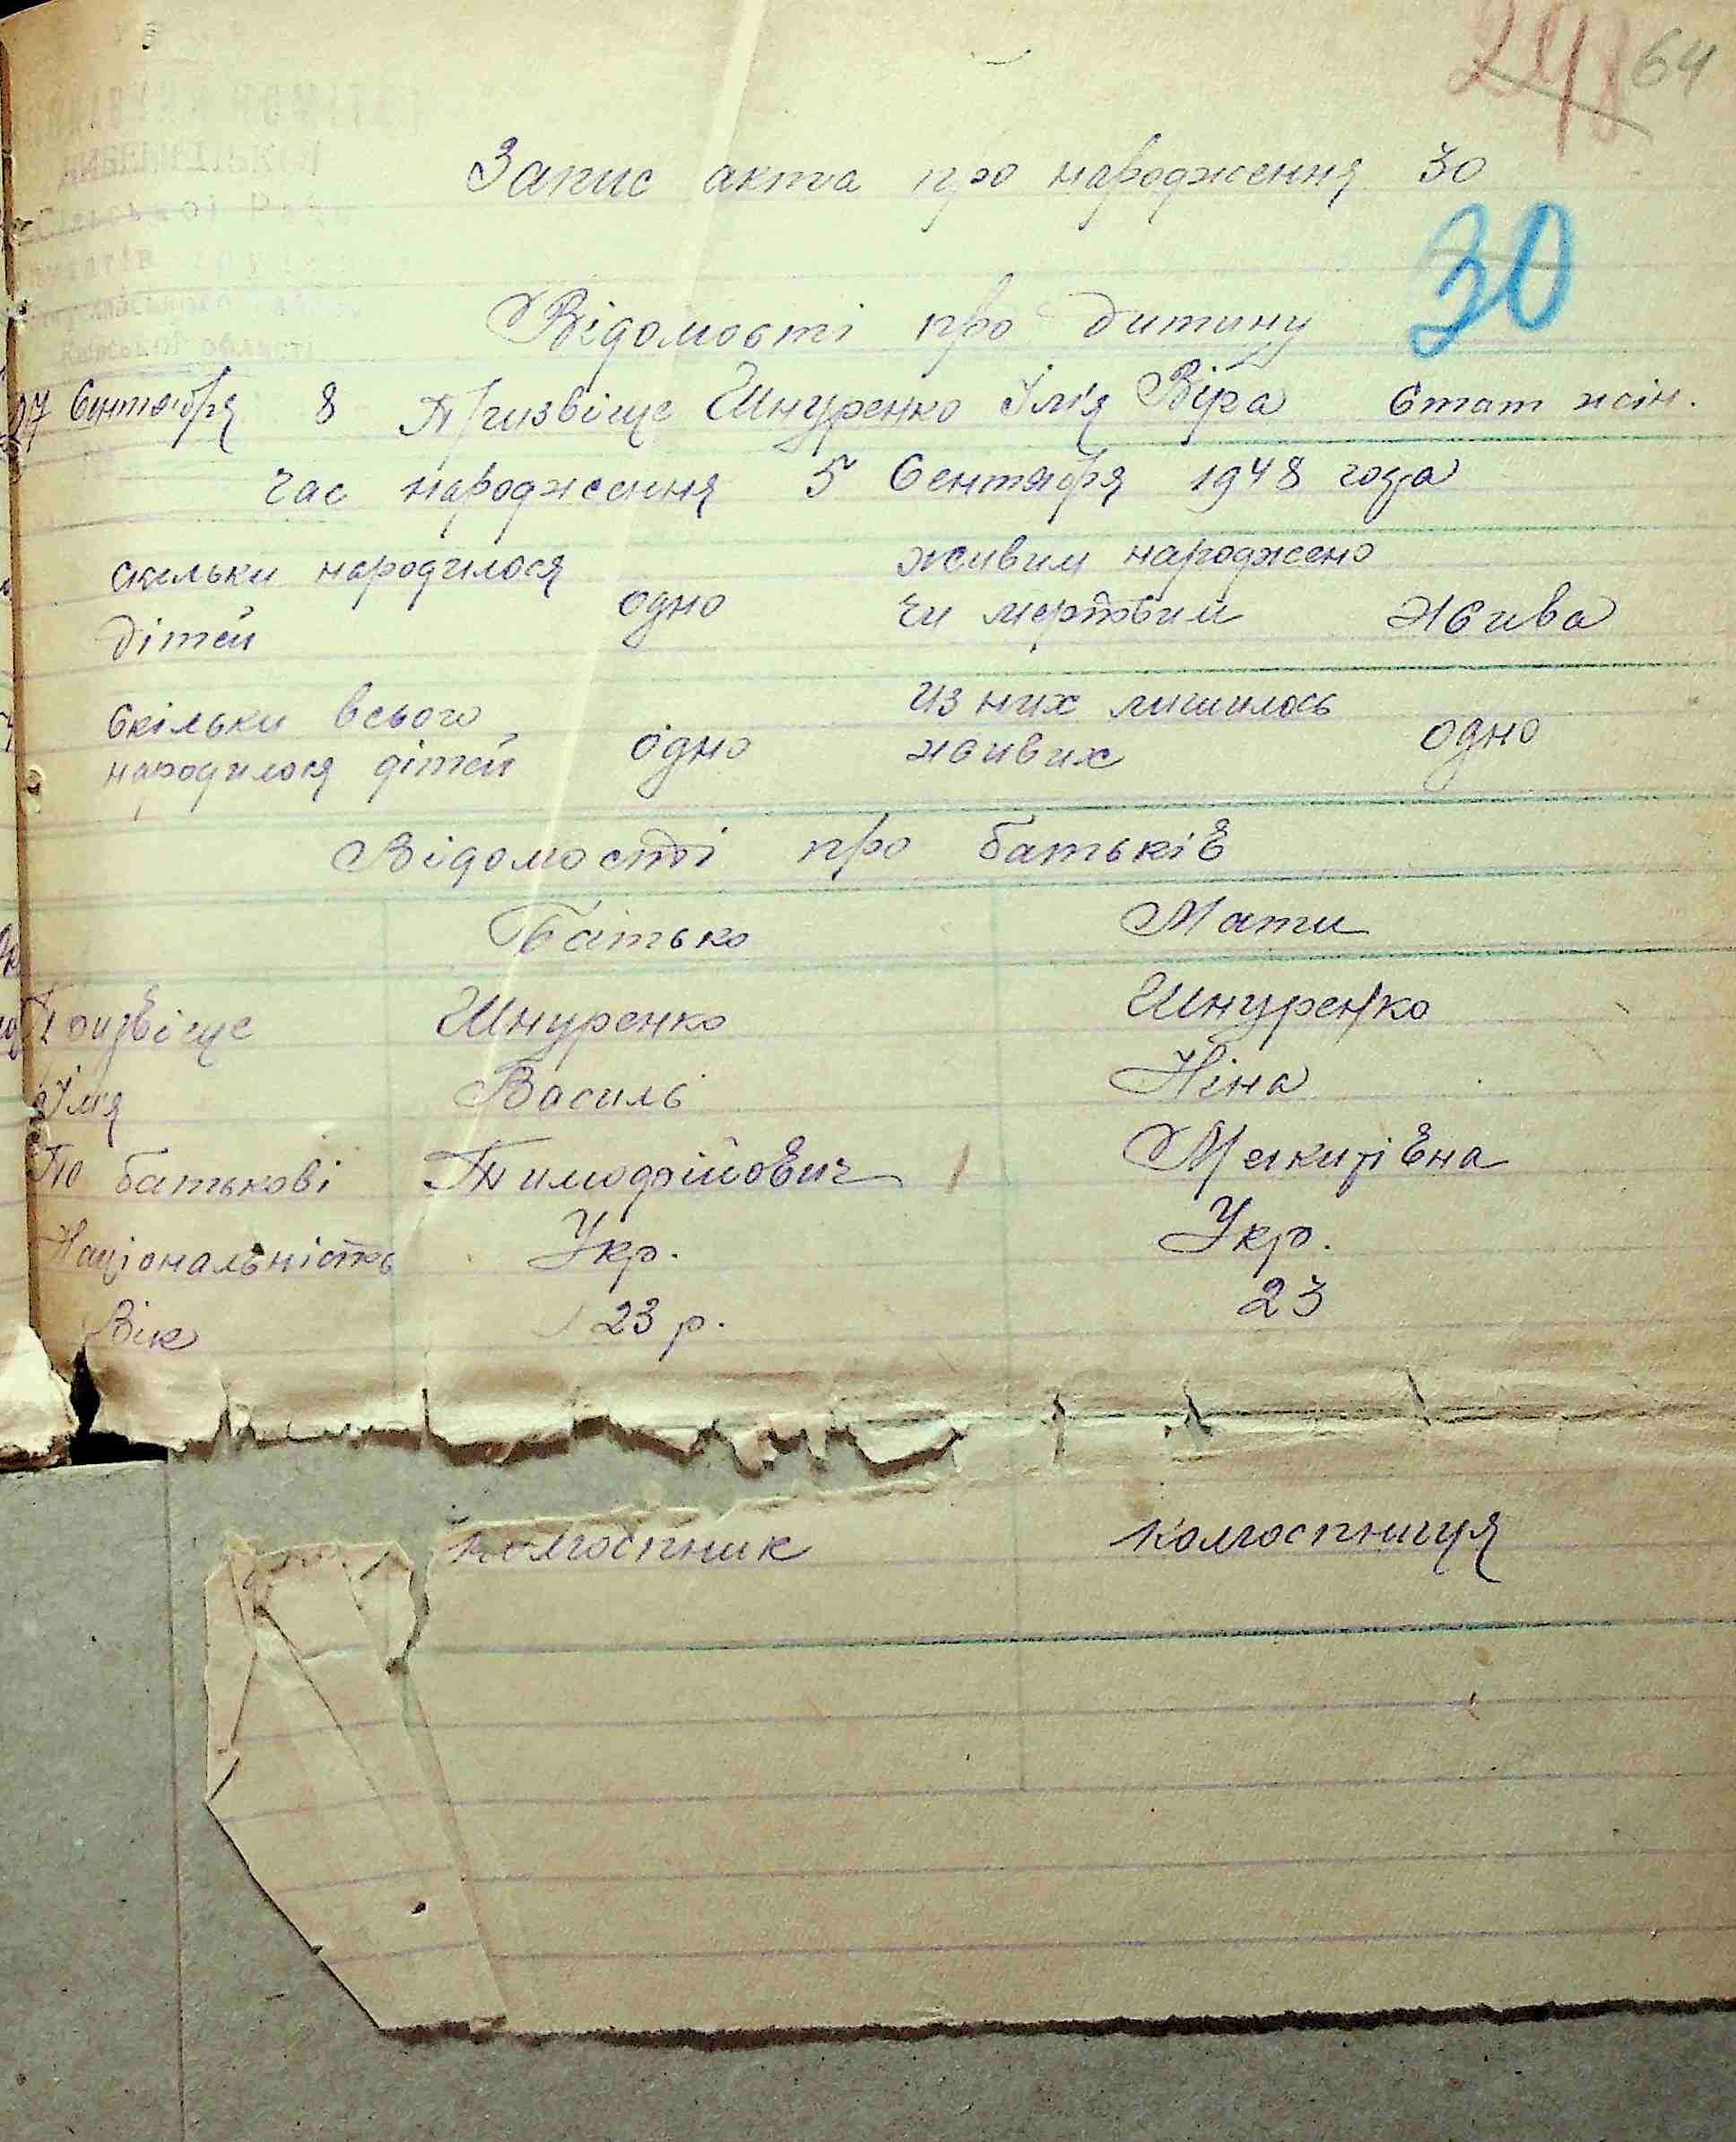 248 64
Запис акта про народження 30
30
Відомості про дитину
07 Сентября 8 Призвіще Шнуренко Ім'я Віра Стат жін.
час народження 5 Сентября 1948 года
скільки народилося дітей одно живим народжено чи мертвим жива
скільки всього народилося дітей одно из них лишилось живих одно
Відомості про батьків
Батько Мати
Призвіще Шнуренко Шнуренко
Ім'я Василь Ніна
По батькові Тимофійович
Національність Укр. Укр.
Вік 23 р. 23
колгоспник колгоспниця